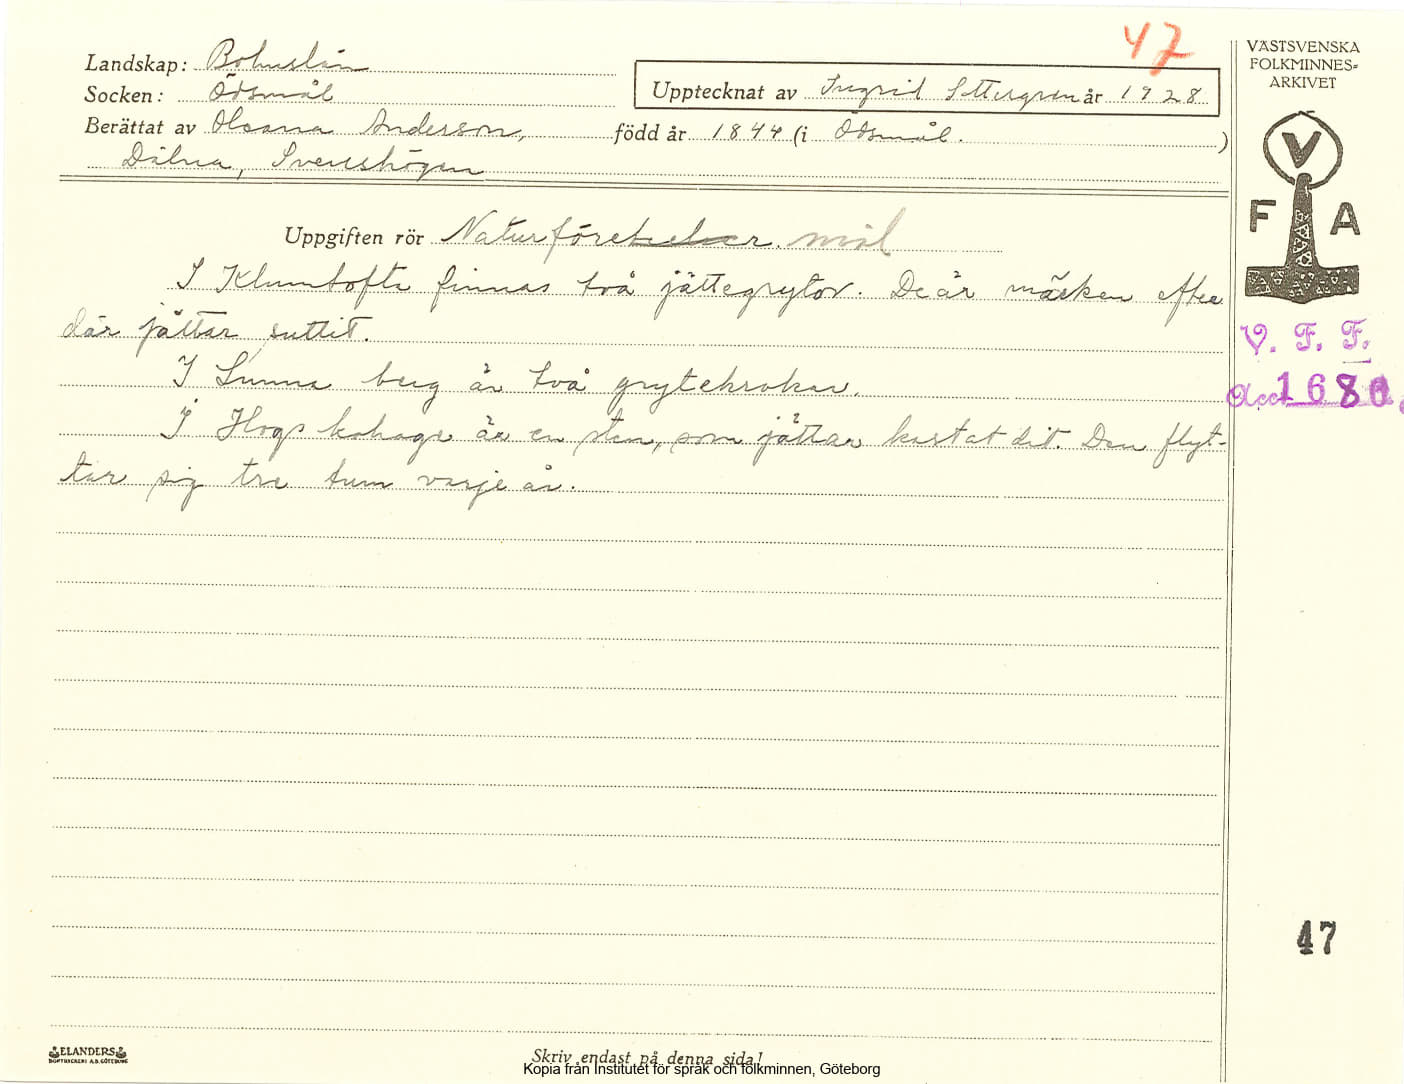 47
VÄSTSVENSKA
FOLKMINNES=
ARKIVET
Landskap: Bohuslän
Socken: Ödsmål
Upptecknat av Ingrid Settergren år 1928
Berättat av Oleana Anderson, född år 1844 (i Ödsmål. )
Svenshögen
V
F A
Uppgiften rör Naturföreteelser. mål
I Klumtofta finnas två jättegrytor. De är märken efter
där jättar suttit.
V. F. F.
I Sunna berg är två grytekrokar.
Acc 1680
I Hogs kohage är en sten, som jättar kastat dit. Den flyt-
tar sig tre tum varje år.
47
ELANDERS
BOKTRYCKERI A.B. GÖTEBORG
Skriv endast på denna sida!
Kopia från Institutet för språk och folkminnen, Göteborg